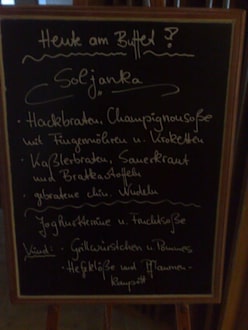 Heute am Buffet?
Soljanka
- Hackbraten, Champignonsoße
mit Fingermöhren u. Kroketten
- Kaßlerbraten, Sauerkraut
und Bratkartoffeln
- gebratene chin. Nudeln
Joghurtterrine u. Fruchtsoße
Kind: - Grillwürstchen u. Pommes
- Hefeklöße und Pflaumen-
kompott